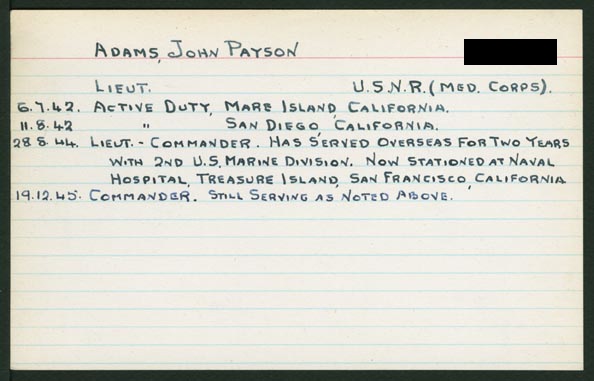 ADAMS, JOHN PAYSON
LIEUT. U.S.N.R. (MED. CORPS).
6.7.42. ACTIVE DUTY, MARE ISLAND, CALIFORNIA.
11.8.42 " SAN DIEGO, CALIFORNIA.
28.8.44. LIEUT.-COMMANDER. HAS SERVED OVERSEAS FOR TWO YEARS
WITH 2ND U.S. MARINE DIVISION. NOW STATIONED AT NAVAL
HOSPITAL, TREASURE ISLAND, SAN FRANCISCO, CALIFORNIA
19.12.45. COMMANDER. STILL SERVING AS NOTED ABOVE.